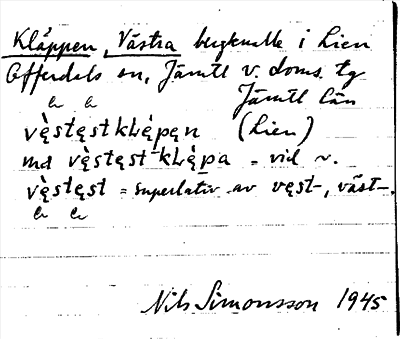 Kläppen, Västra bergknalle i Lien
Offerdals sn, Jämtl v. doms. tg
Jämtl län
vęstęstkLępęn (Lien)
vęstęst-kLępa = vid ~.
vęstęst = superlativ av vęst-, väst-.
Nils Simonsson 1945